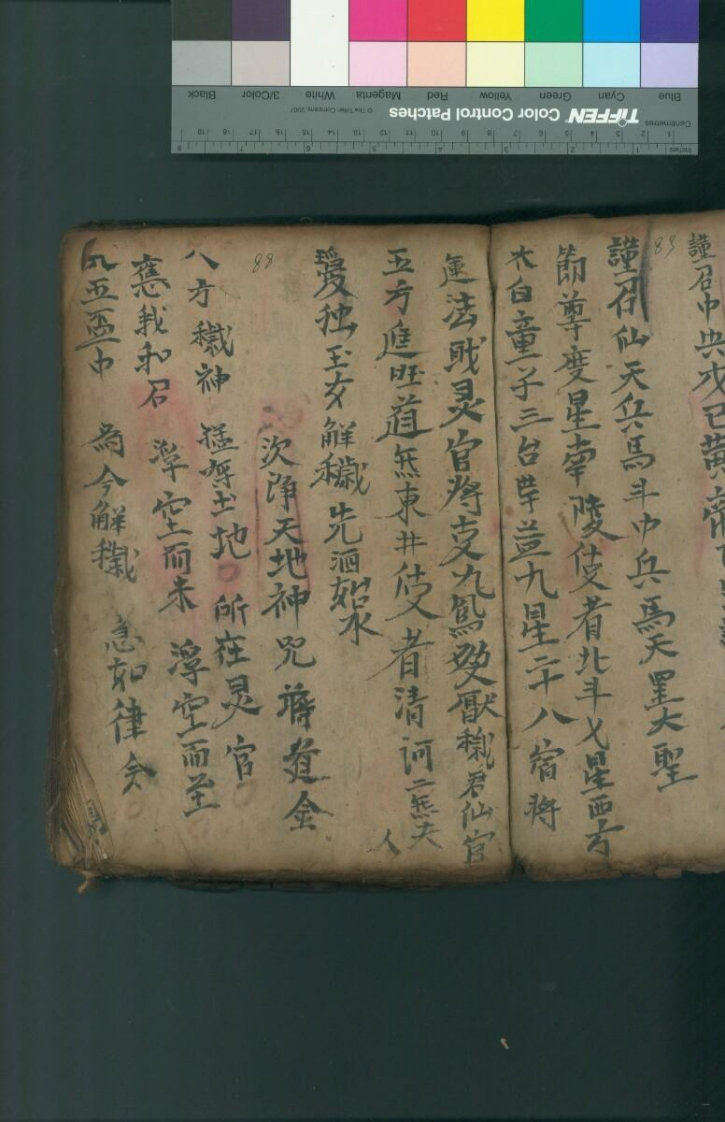 謹召中央戊己黄
謹召仙天兵馬斗中兵馬天罡大聖
節尊度星南陵使者北斗七星西方
太白童子三台華益九星二十八宿將
法戝灵官將吏九鳳破獸穢君仙官
五方進旺道無東井使者清河二無夫
人
愛独玉女解穢先洒如水
次净天地神咒 蔣道金
八方穢神 猛呼土地 所在灵官
應我和召 浮空而来 浮空而至
五盃中 為今解穢 急如律令
88
89
TIFFEN Color Control Patches
© The Tiffen Company, 2007
Centimetres
Inches
Blue Cyan Green Yellow Red Magenta White 3/Color Black